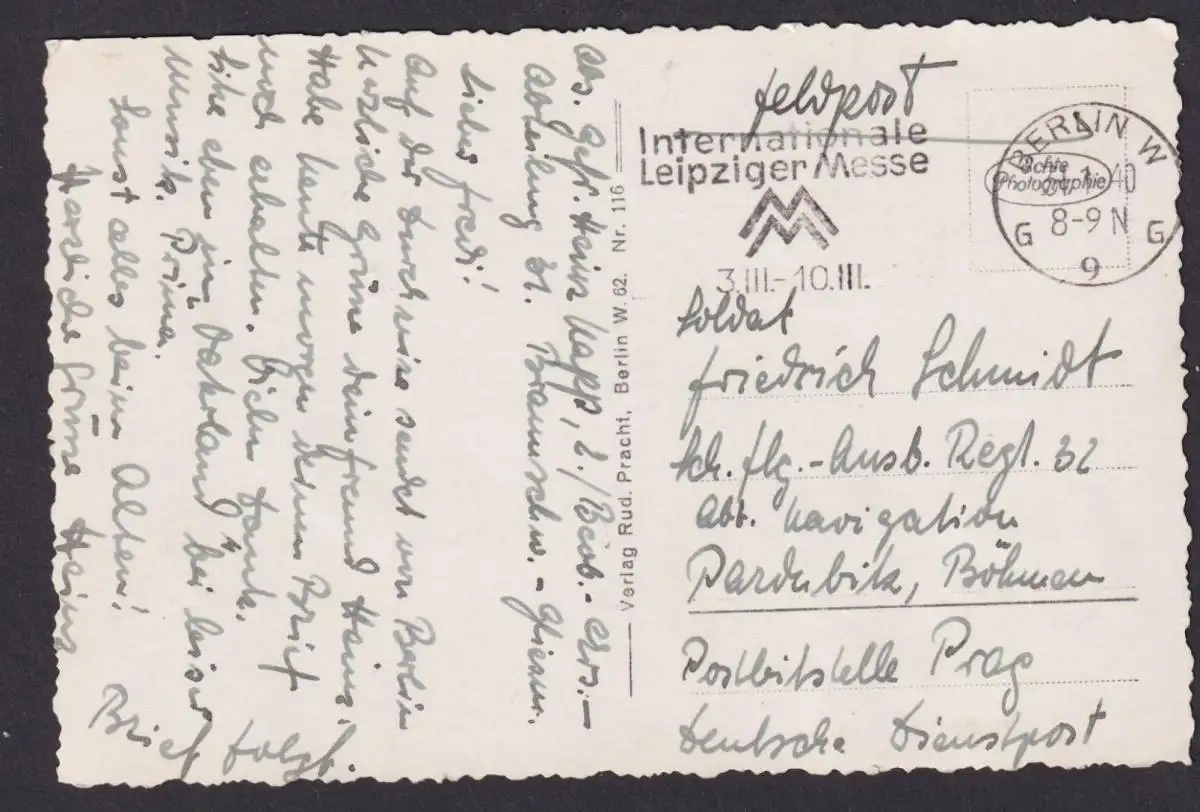 Feldpost
Internationale
Leipziger Messe
3.III.-10.III.
BERLIN W
40
8-9 N
G G
9
Echte
Photographie
Soldat
Friedrich Schmidt
Sch. flg.-Ausb. Regt. 32
Abt. Navigation
Pardubitz, Böhmen
Postleitstelle Prag
Deutsche Dienstpost
Verlag Rud. Pracht, Berlin W. 62. Nr. 116
Abs. Gefr. Heinz Kapp, 2./Beob.-Ers.-
Abteilung 31. Braunschw.-
Lieber Fredi!
Auf der Durchreise sendet von Berlin
herzliche Grüße dein Freund Heinz.
Habe heute morgen deinen Brief
noch erhalten. Vielen Dank.
Sitze eben im "Vaterland" bei leiser
Mussik. Prima.
Sonst alles beim Alten!
Herzliche Grüsse Heinz
Brief folgt.